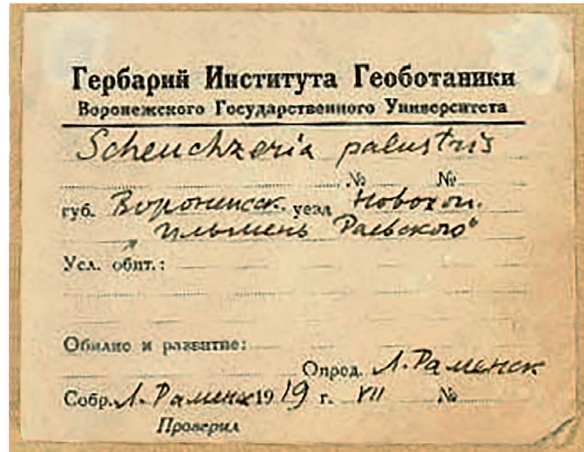 Гербарий Института Геоботаники
Воронежского Государственного Университета
Scheuchzeria palustris
№ №
губ. Воронежск. уезд Новохоп.
"Ильмень Раевского"
Усл. обит.:
Обилие и развитие:
Опред. Л. Раменск
Собр. Л. Раменск 1919 г. VII №
Проверил